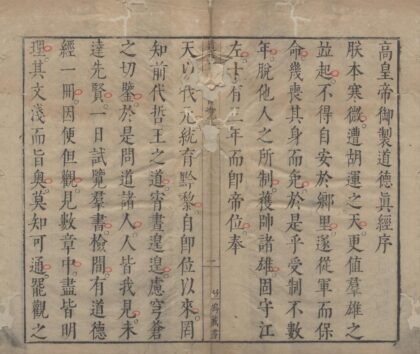 高皇帝御製道德眞經序
朕本寒微遭胡運之天更值羣雄之
竝起不得自安於鄉里遂從軍而保
命幾喪其身而免於是乎受制不數
年脫他人之所制獲帥諸雄固守江
左十有三年而卽帝位奉
天以代元統育黔黎自卽位以來罔
知前代哲王之道宵晝遑遑慮穹蒼
之切鑒於是問道諸人人皆我見未
達先賢一日試覽羣書檢間有道德
經一冊因便但觀見數章中盡皆明
理其文淺而旨奧莫知可通罷觀之